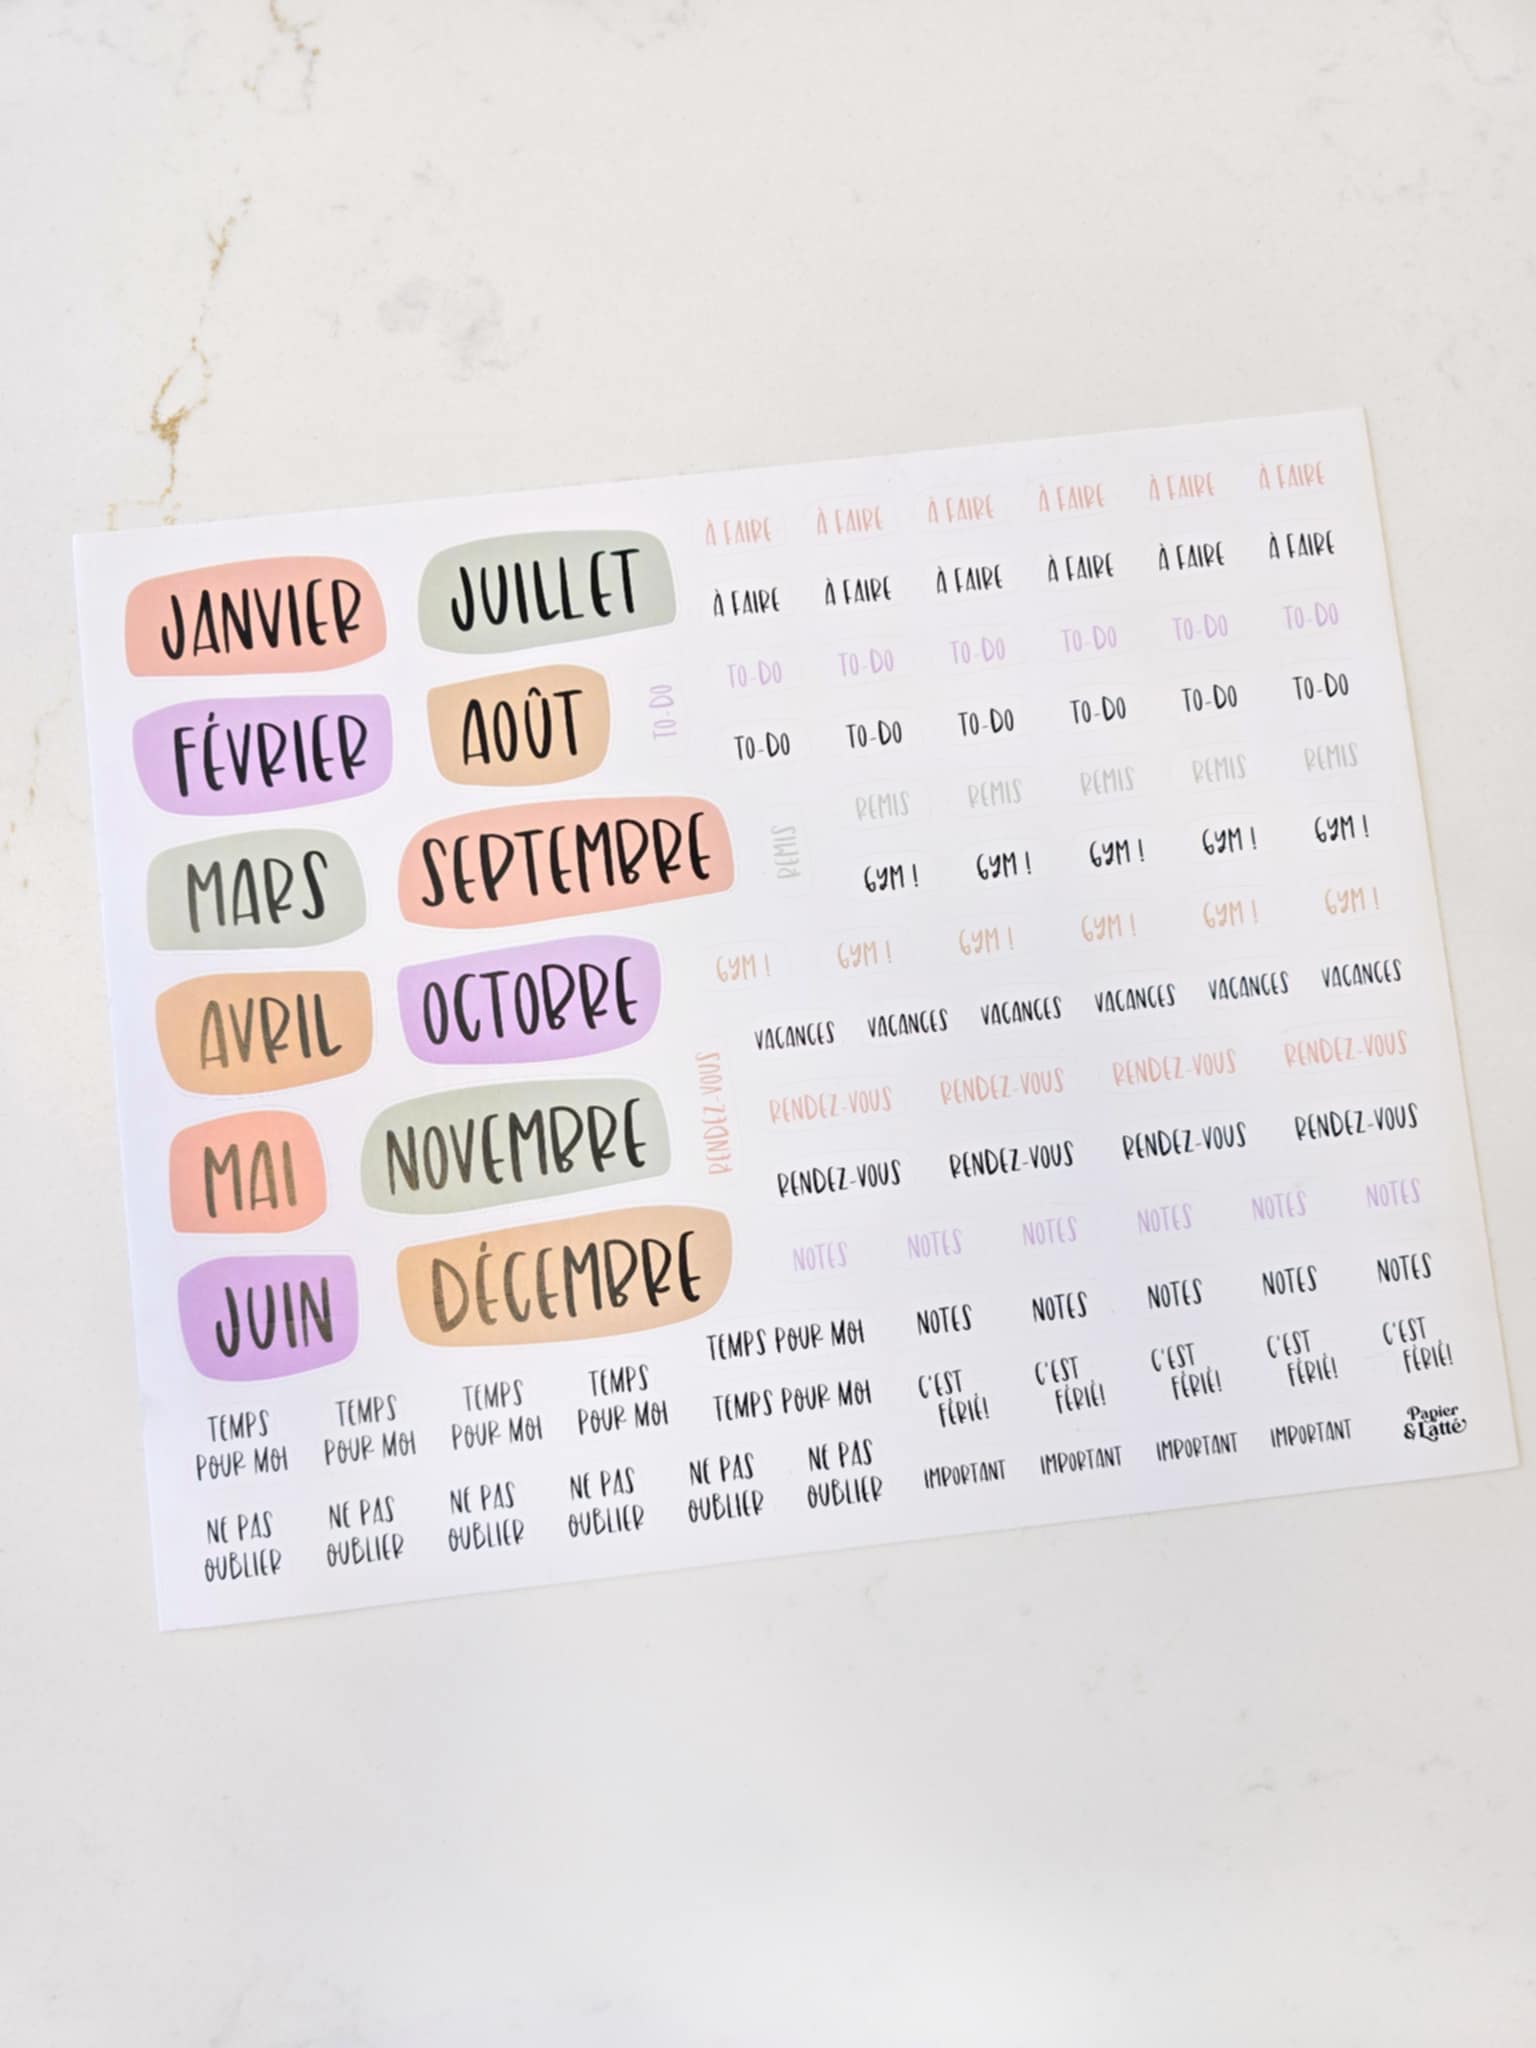 JANVIER
JUILLET
FÉVRIER
AOÛT
MARS
SEPTEMBRE
AVRIL
OCTOBRE
MAI
NOVEMBRE
JUIN
DÉCEMBRE
À FAIRE À FAIRE À FAIRE À FAIRE À FAIRE À FAIRE
À FAIRE À FAIRE À FAIRE À FAIRE À FAIRE À FAIRE
TO-DO TO-DO TO-DO TO-DO TO-DO TO-DO
TO-DO
TO-DO TO-DO TO-DO TO-DO TO-DO TO-DO
REMIS REMIS REMIS REMIS REMIS
REMIS
GYM ! GYM ! GYM ! GYM ! GYM !
GYM ! GYM ! GYM ! GYM ! GYM ! GYM !
VACANCES VACANCES VACANCES VACANCES VACANCES VACANCES
RENDEZ-VOUS
RENDEZ-VOUS RENDEZ-VOUS RENDEZ-VOUS RENDEZ-VOUS
RENDEZ-VOUS RENDEZ-VOUS RENDEZ-VOUS RENDEZ-VOUS
NOTES NOTES NOTES NOTES NOTES NOTES
TEMPS POUR MOI NOTES NOTES NOTES NOTES NOTES
TEMPS TEMPS TEMPS TEMPS
POUR MOI POUR MOI POUR MOI POUR MOI
TEMPS POUR MOI
C'EST C'EST C'EST C'EST C'EST
FÉRIÉ! FÉRIÉ! FÉRIÉ! FÉRIÉ! FÉRIÉ!
NE PAS NE PAS NE PAS NE PAS NE PAS NE PAS
OUBLIER OUBLIER OUBLIER OUBLIER OUBLIER OUBLIER
IMPORTANT IMPORTANT IMPORTANT IMPORTANT
Papier
&Latté